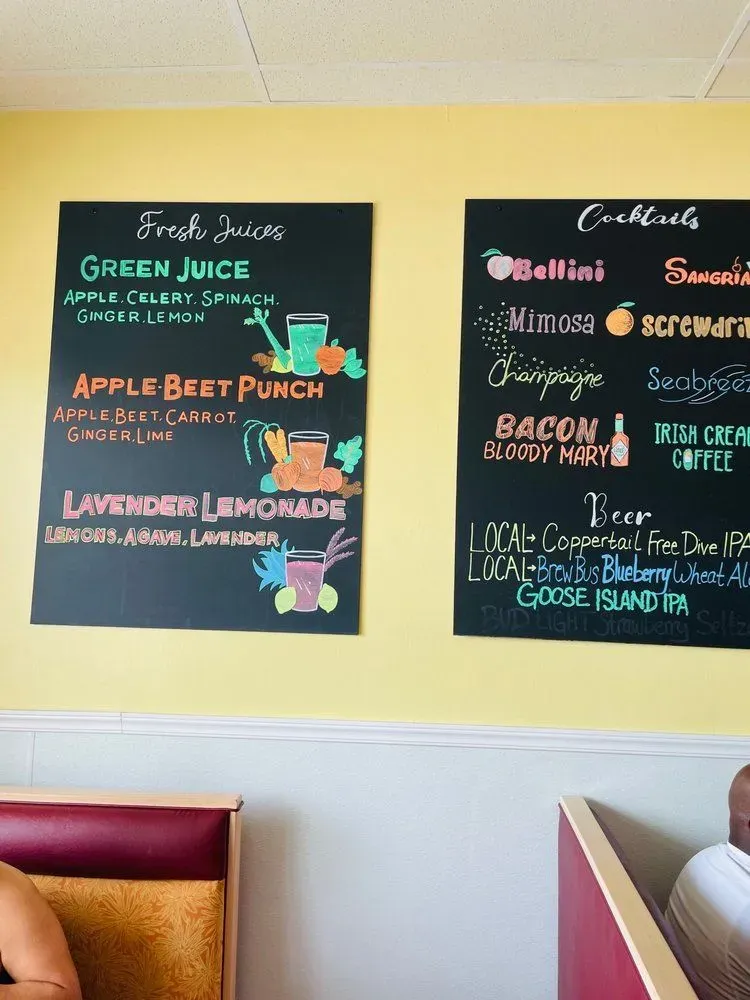 Fresh Juices
GREEN JUICE
APPLE, CELERY, SPINACH,
GINGER, LEMON
APPLE-BEET PUNCH
APPLE, BEET, CARROT,
GINGER, LIME
LAVENDER LEMONADE
LEMONS, AGAVE, LAVENDER
Cocktails
Bellini
SANGRIA
Mimosa
screwdri
Champagne
Seabreez
BACON
BLOODY MARY
IRISH CREA
COFFEE
Beer
LOCAL→ Coppertail Free Dive IPA
LOCAL→ BrewBus Blueberry Wheat Al
GOOSE ISLAND IPA
BUD LIGHT Strawberry Seltz